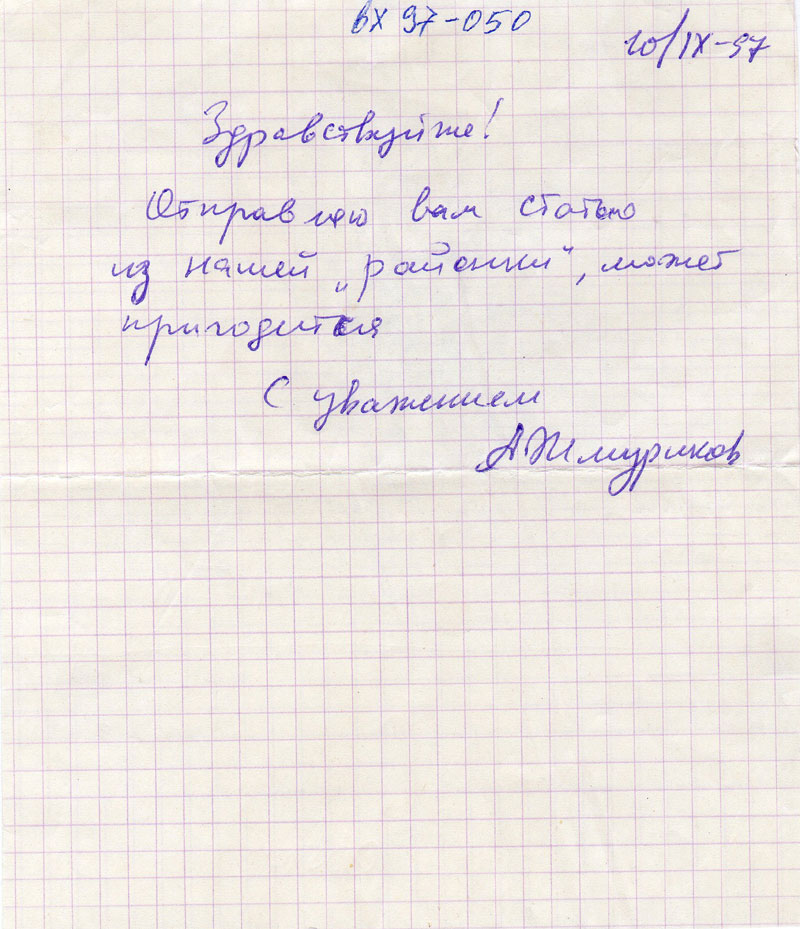 вх 97-050
10/IX-97
Здравствуйте!
Отправляю вам статью
из нашей „районки", может
пригодится
С уважением
А Жмуриков